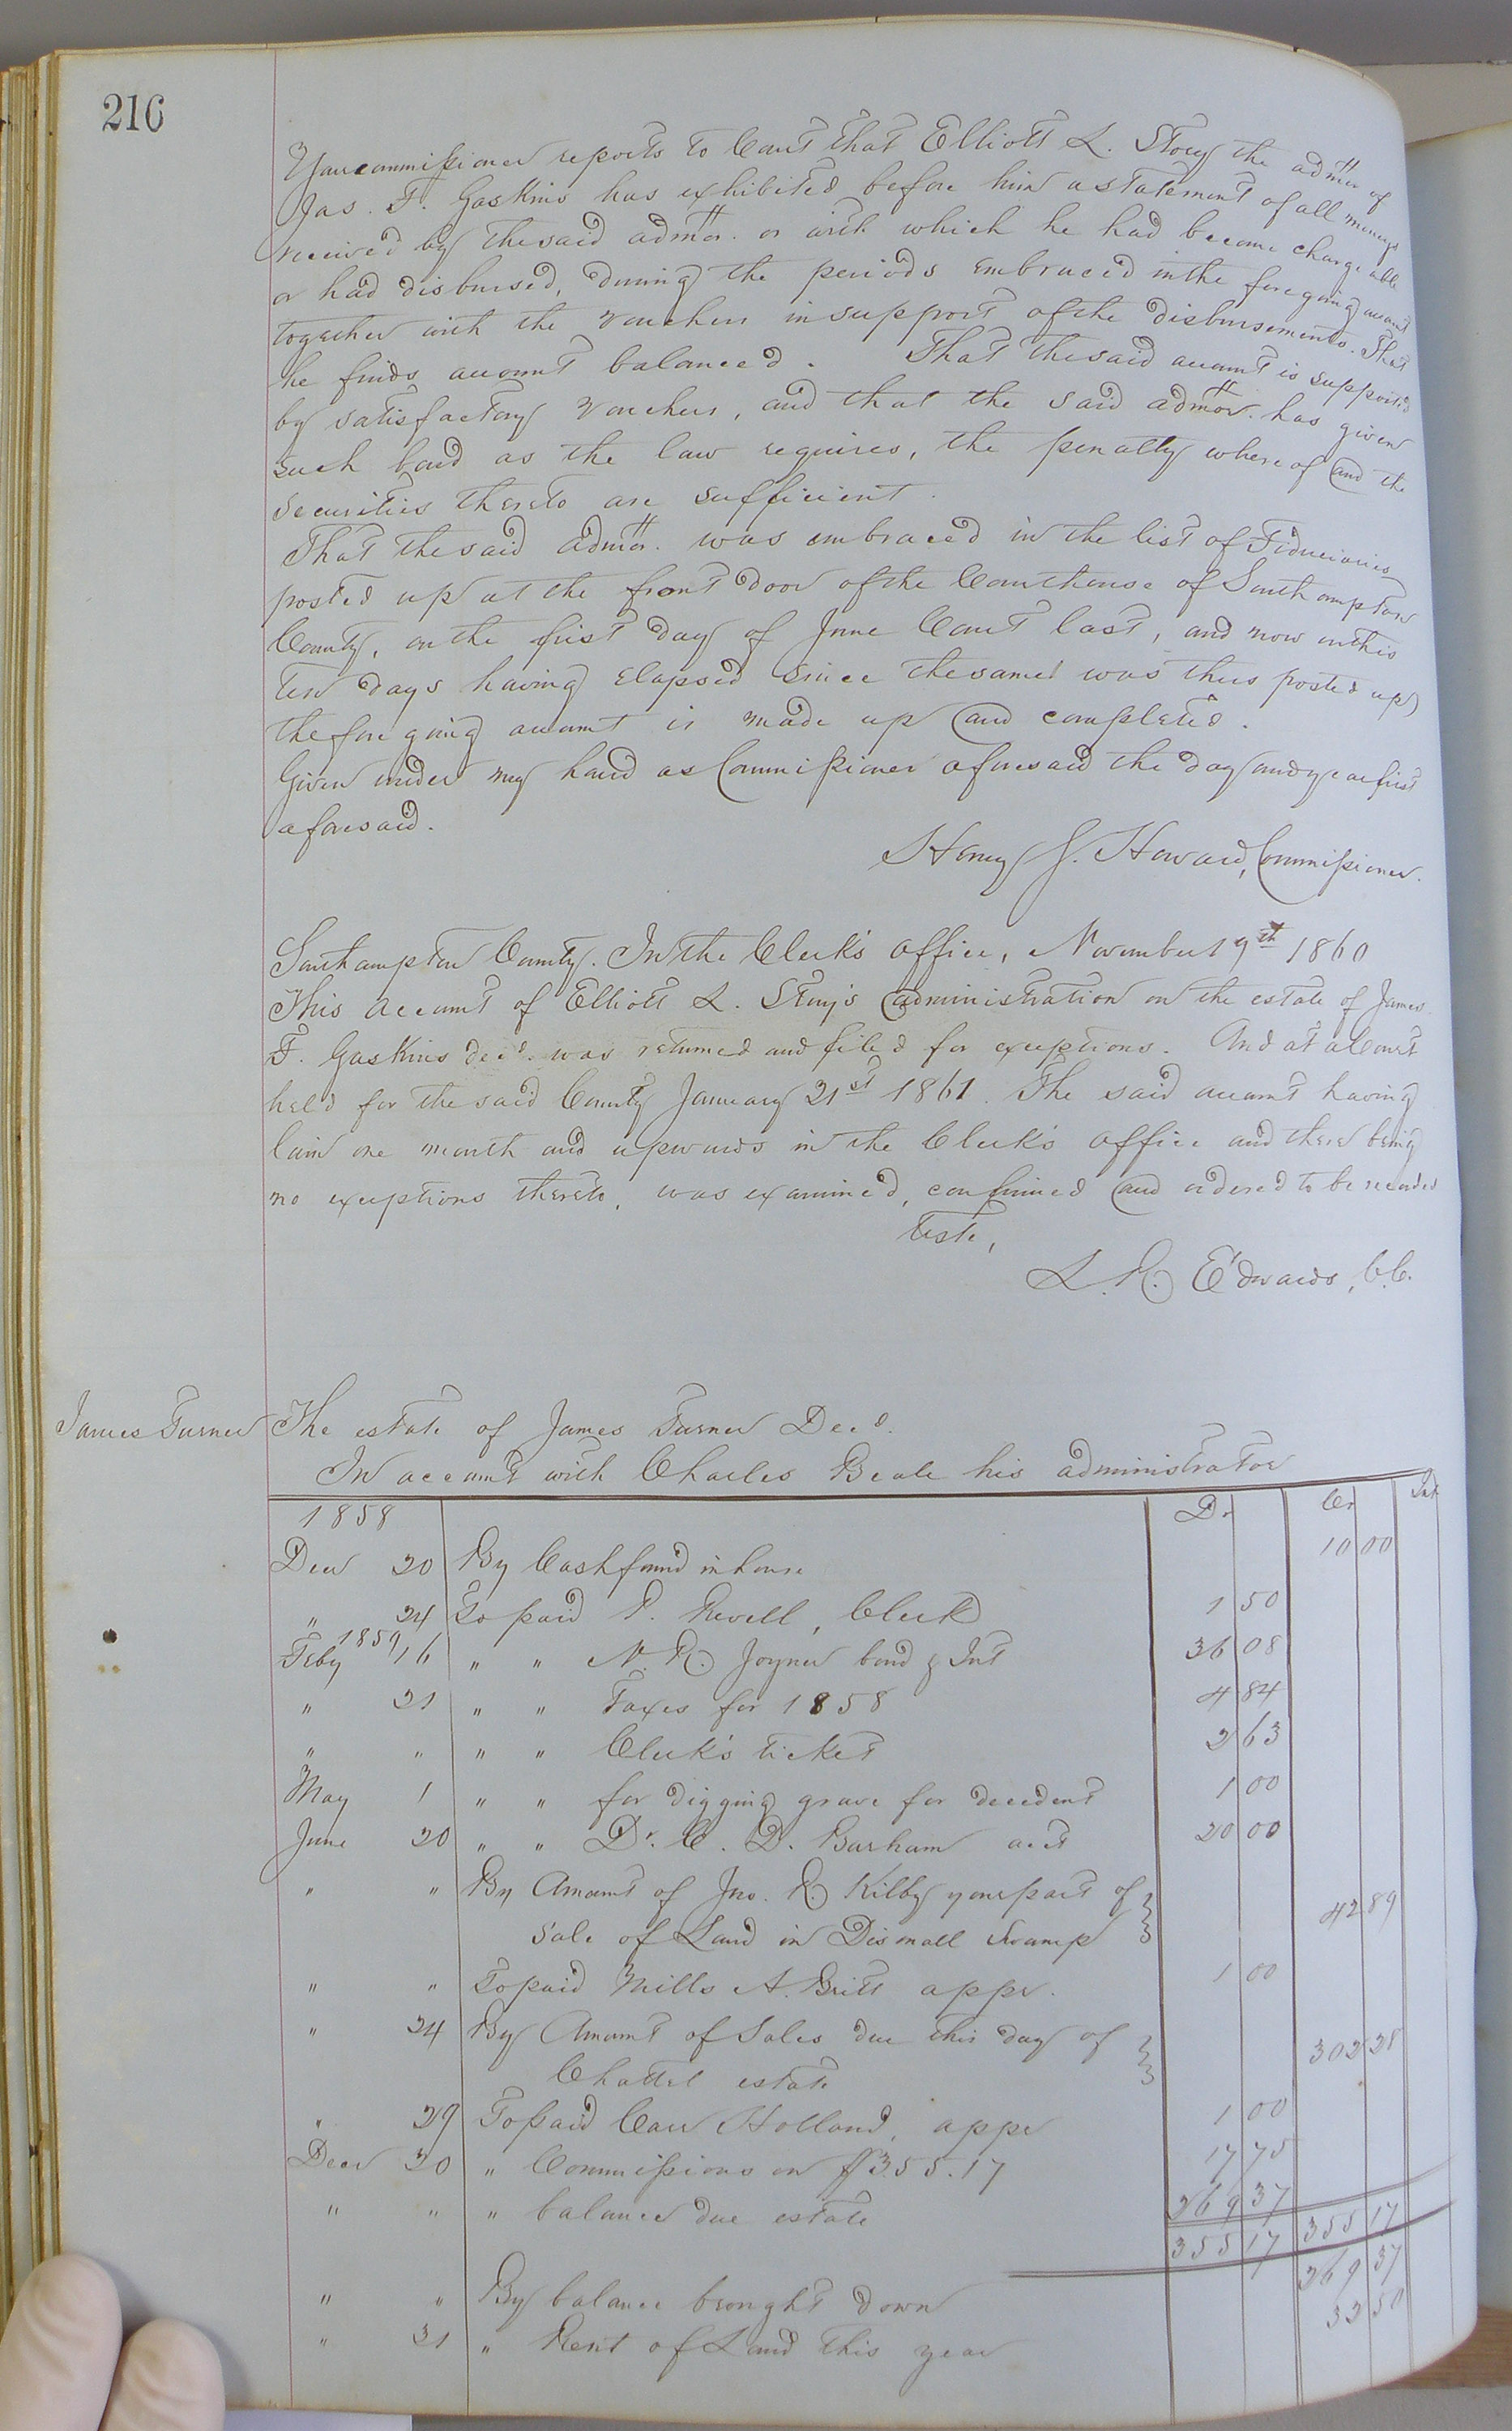 216
Your commissioner reports to Court that Elliott L. Story the admtor of
Jas. F. Gaskins has exhibited before him a statement of all moneys
received by the said admtor. or with which he had become chargeable
or had disbursed, during the periods embraced in the foregoing account
together with the vouchers in support of the disbursements. That
he finds account balanced. That the said account is supported
by satisfactory vouchers, and that the said admtor. has given
such bond as the law requires, the penalty whereof and the
securities thereto are sufficient.
That the said admtor. was embraced in the list of Fiduciaries
posted up at the front door of the Courthouse of Southampton
County, on the first day of June Court last, and now on this
ten days having elapsed since the same was thus posted up
the foregoing account is made up and completed.
Given under my hand as Commissioner aforesaid the day and year first
aforesaid.
Henry J. Howard, Commissioner.
Southampton County. In the Clerk's office, November 19th 1860
This account of Elliott L. Story's administration on the estate of James
F. Gaskins decd. was returned and filed for exceptions. And at a Court
held for the said County January 21st 1861. The said account having
lain one month and upwards in the Clerk's office and there being
no exceptions thereto, was examined, confirmed and ordered to be recorded
Teste,
L. R. Edwards, C.C.
James Turner The estate of James Turner Decd.
In account with Charles Beale his administrator
1858 Dr Cr Int
Decr 20 By Cash found in house 10 00
" 24 To paid P. Revell, Clerk 1 50
1859
Feby 16 " " N. R. Joyner bond & Int 36 08
" 21 " " Taxes for 1858 4 84
" " " " Clerk's ticket 2 63
May 1 " " for digging grave for decedent 1 00
June 20 " " Dr. C. D. Barham acct 20 00
" " By Amount of Jno. R. Kilby your part of
Sale of Land in Dismall Swamp 42 89
" " To paid Mills A. Britt appr. 1 00
" 24 By Amount of Sales due this day of
Chattel estate 302 28
" 29 To paid Carr Holland, appr 1 00
Decr 30 " Commissions on $355.17 17 75
" " " balance due estate 269 37
355 17 355 17
" " By balance brought down 269 37
" 31 " Rent of Land this year 33 50